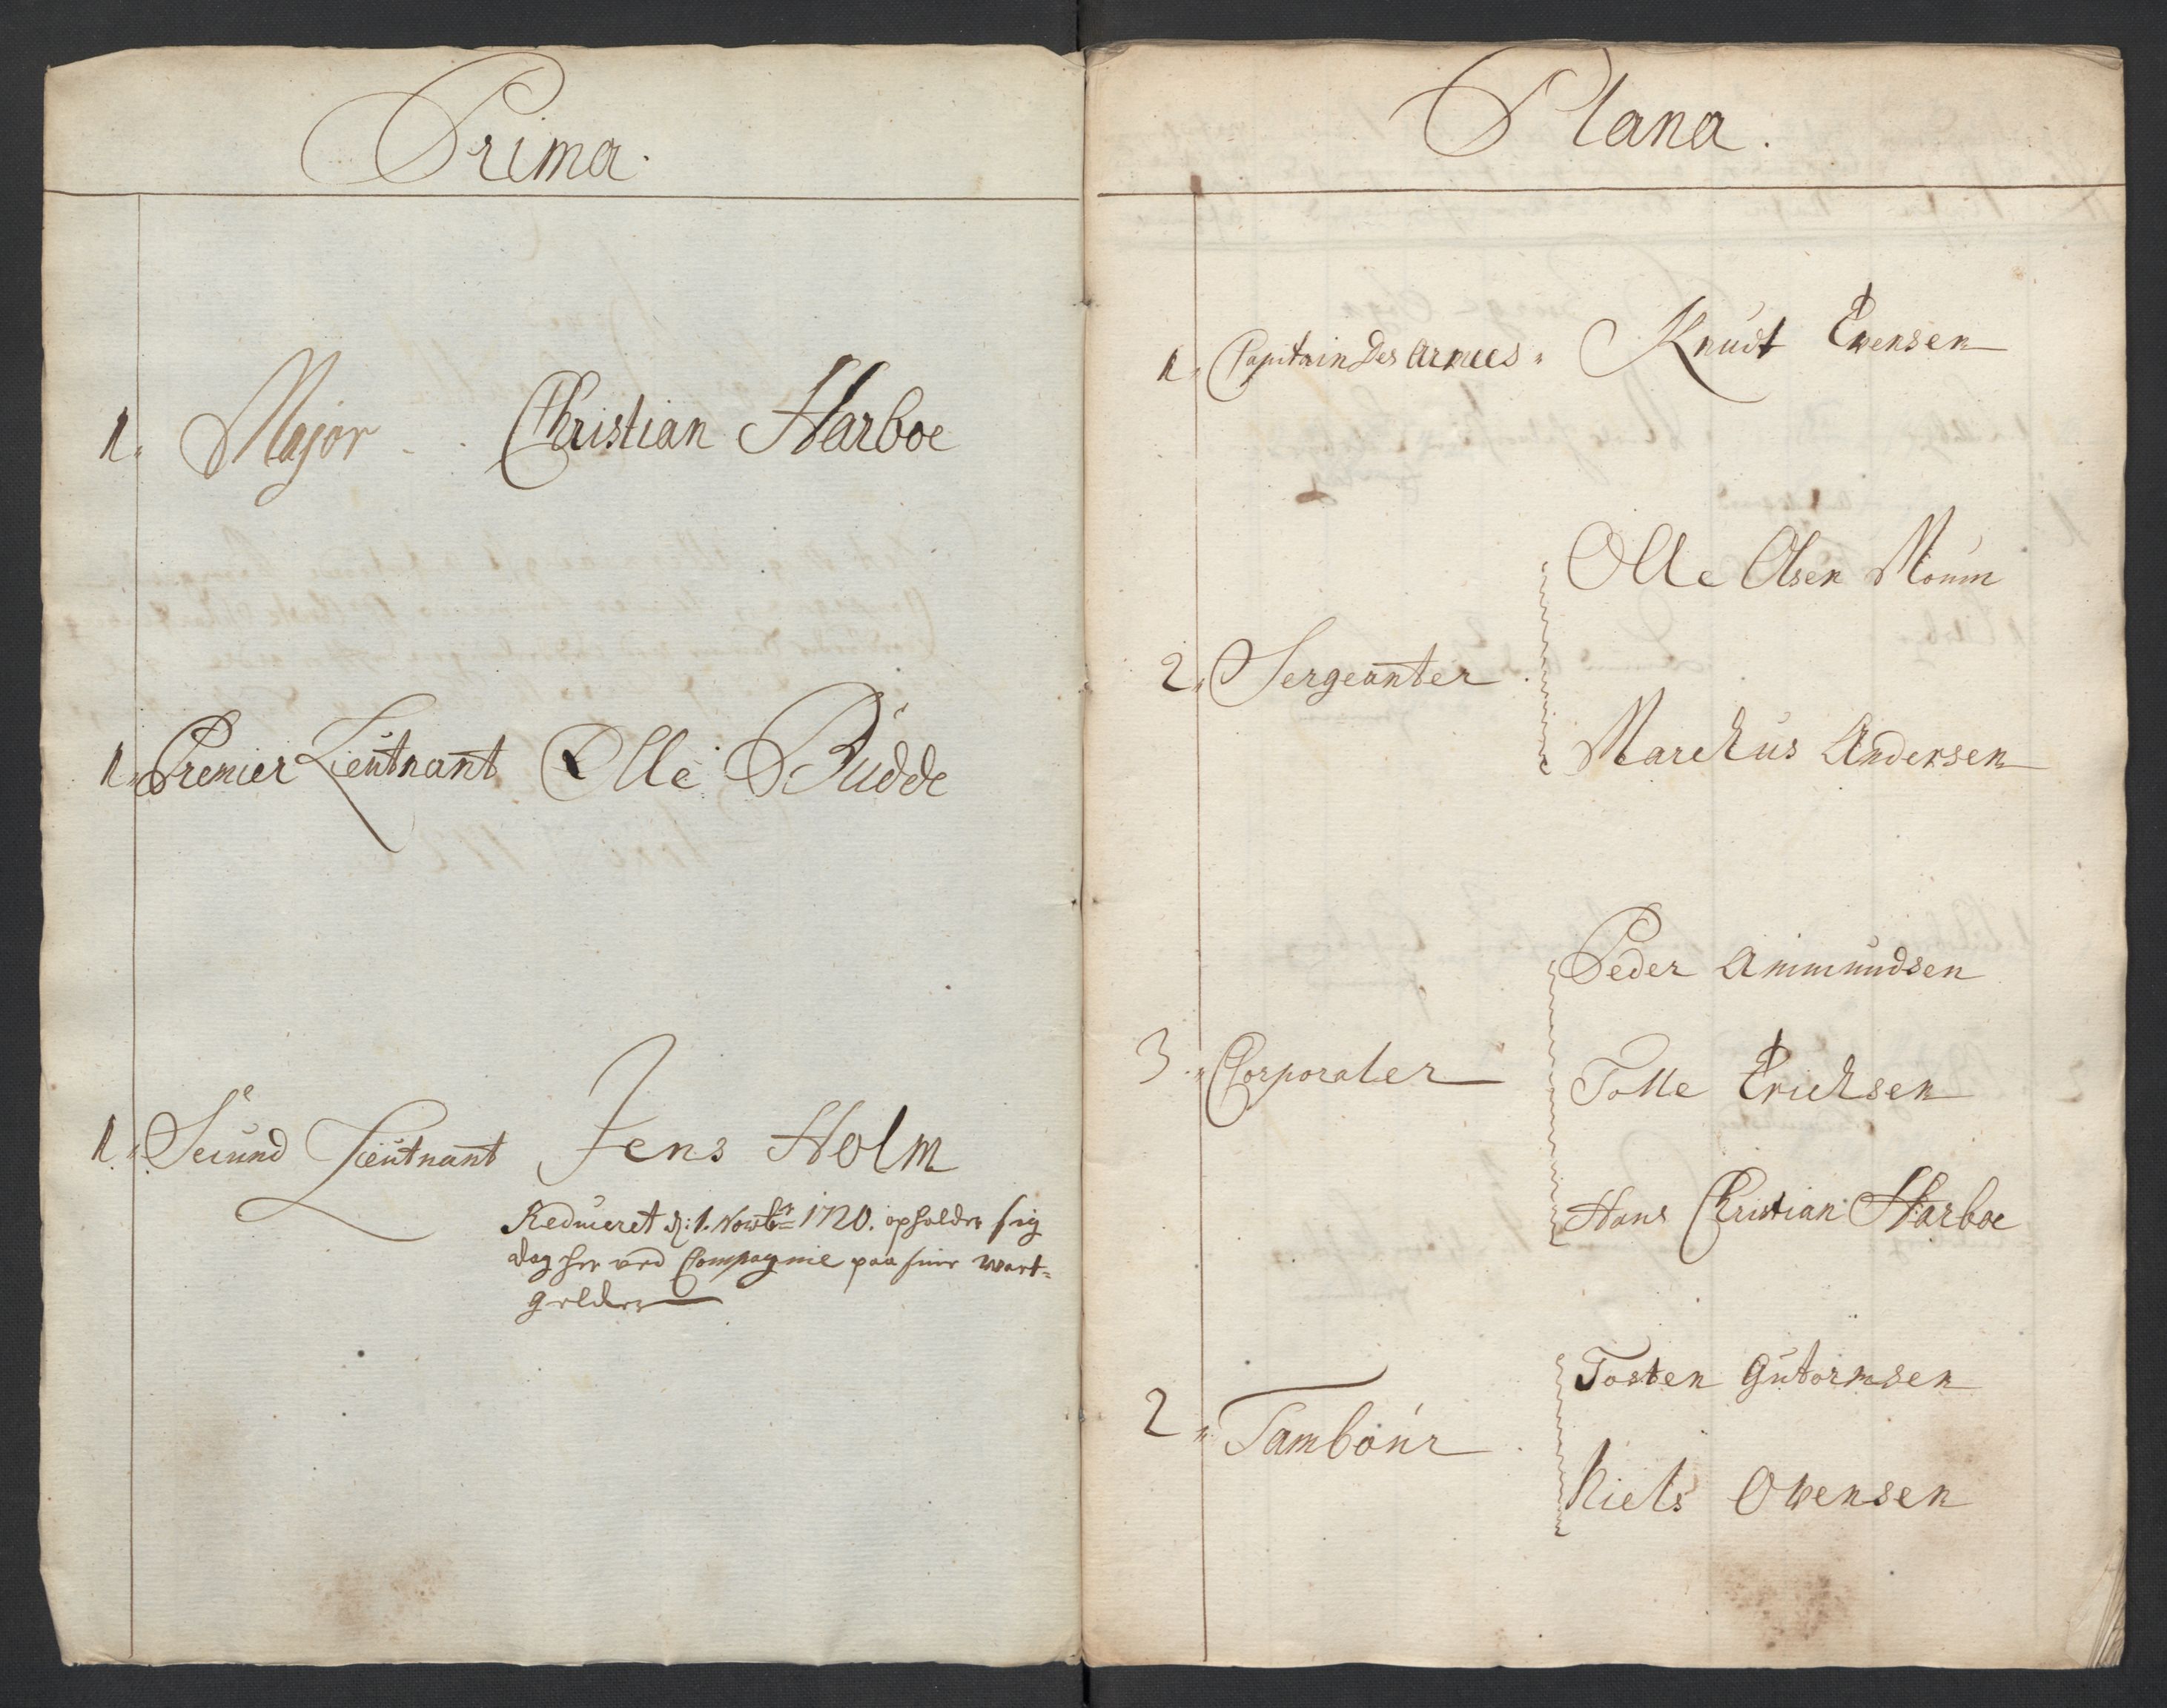 Prima.
1. Major . Christian Harboe
1. Premier Lieutnant Olle Budde
1. Secund Lieutnant Jens Holm
Reduceret d: 1. Novbr 1720. opholder sig
dog her ved Compagnie paa sine wart=
gelder
Plana.
1. Capitain des Armes. Knudt Evensen
Olle Olsen Moum
2. Sergeanter
Marchus Andersen
Peder Ammundsen
3. Corporaler Tolle Erichsen
Hans Christian Harboe
Tosten Gutormsen
2. Tambour
Niels Ovensen